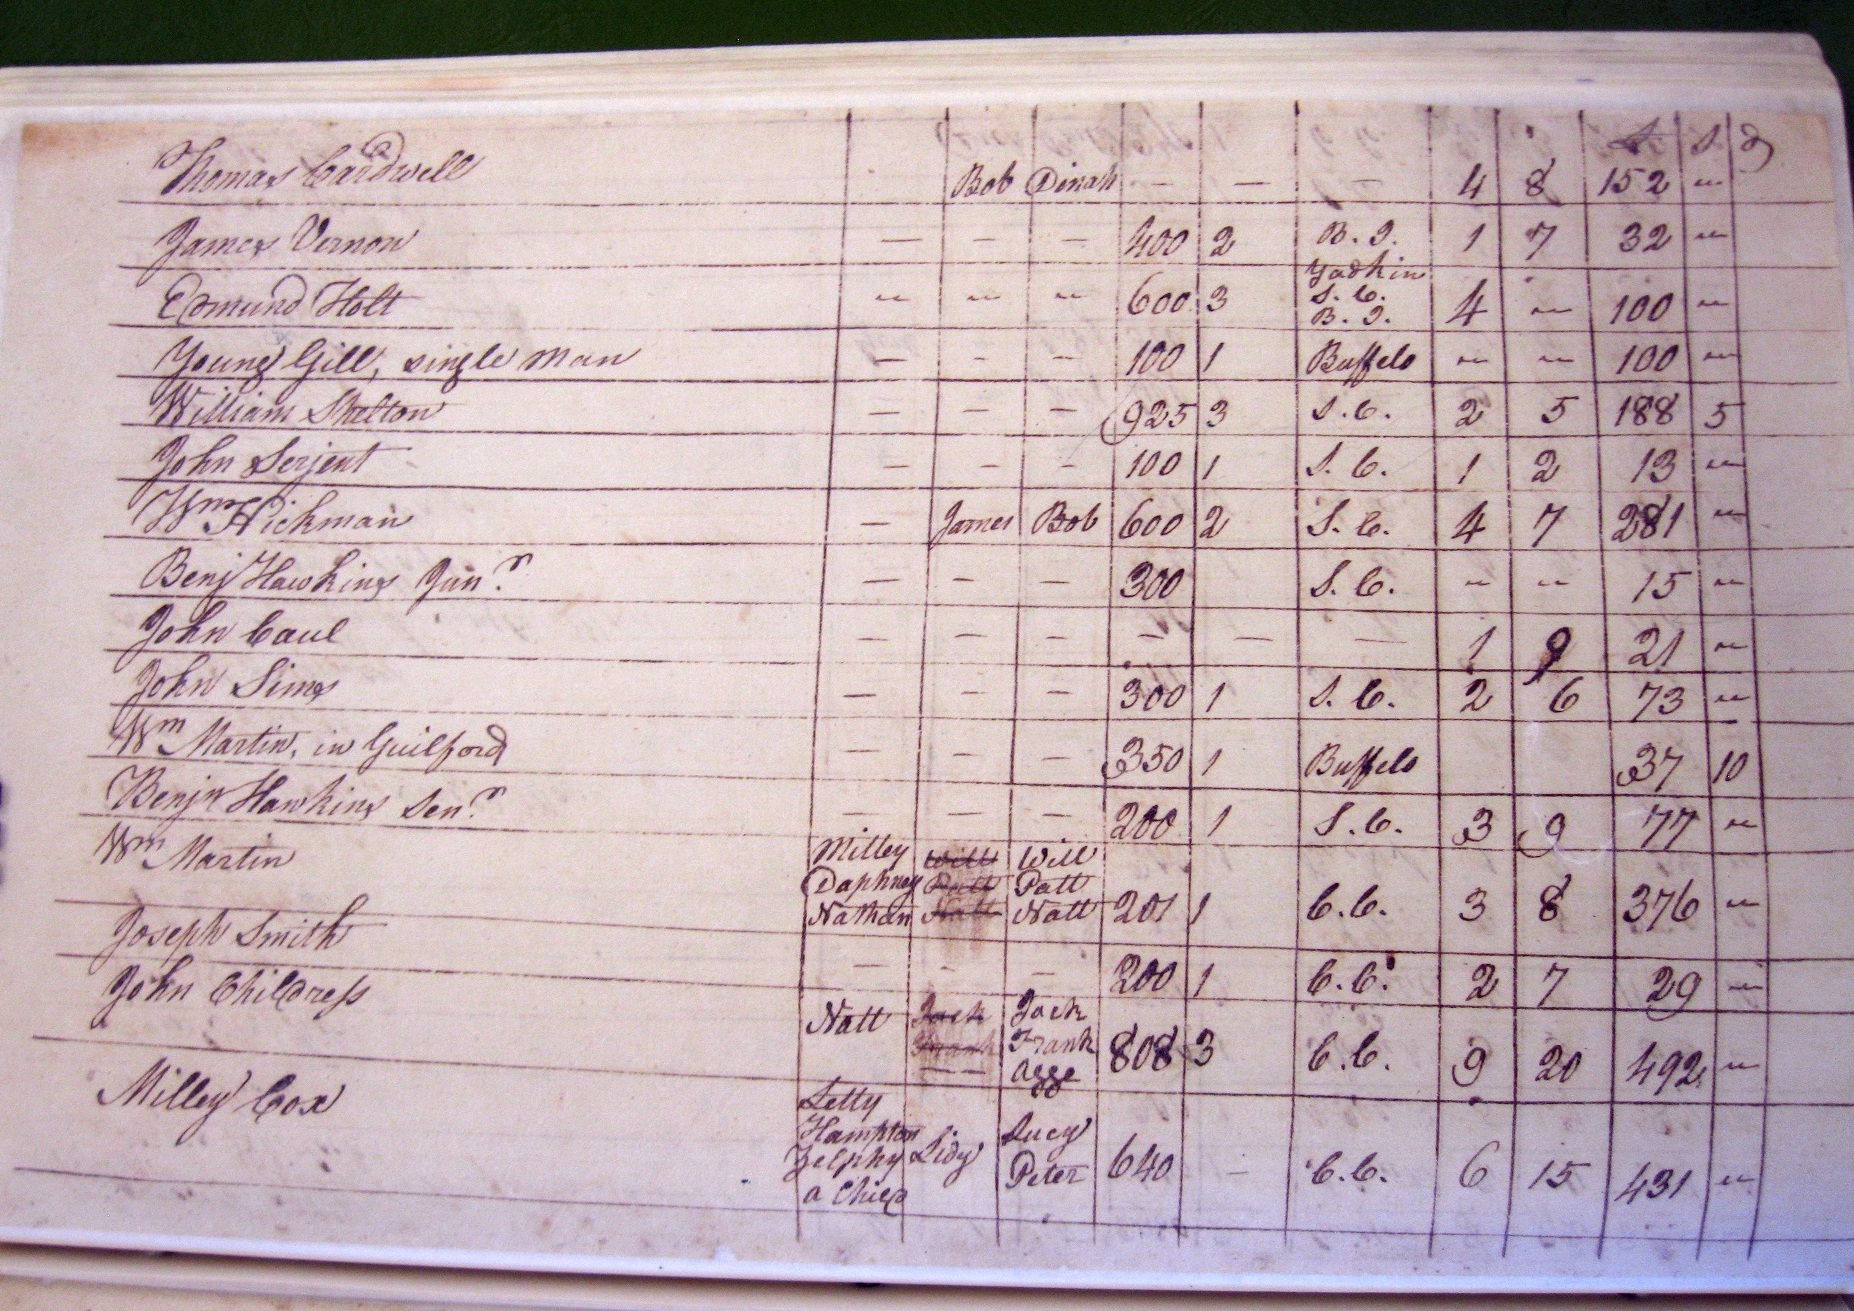 £ S D
Thomas Cardwell Bob Dinah — — — 4 8 152 "
James Vernon — — — 400 2 B. I. 1 7 32 "
Yadkin
Edmund Holt " " " 600 3 S. C. 4 " 100 "
B. I.
Young Gill, single man — — — 100 1 Buffelo " " 100 "
William Shelton — — — 925 3 S. C. 2 5 188 5
John Serjent — — — 100 1 S. C. 1 2 13 "
Wm Hickman — James Bob 600 2 S. C. 4 7 281 "
Benj Hawkins Junr — — — 300 S. C. " " 15 "
John Caul — — — — — — 1 9 21 "
John Sims — — — 300 1 S. C. 2 6 73 "
Wm Martin, in Guilford — — — 350 1 Buffelo 37 10
Benjn Hawkins Senr — — — 200 1 S. C. 3 9 77 "
Milley Will Will
Daphney Patt Patt
Wm Martin Nathan Natt Natt 201 1 C. C. 3 8 376 "
Joseph Smith — - — 200 1 C. C. 2 7 29 "
Natt Jack Jack
John Childress Frank Frank 808 3 C. C. 9 20 492 "
— — Agge
Letty
Hampton Lucy
Milley Cox Zelphy Lidy Peter 640 — C. C. 6 15 431 "
a Child